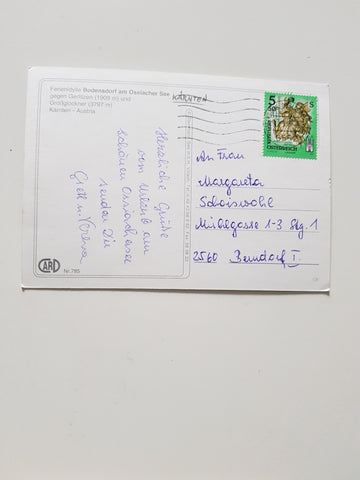 Ferienidylle Bodensdorf am Ossiacher See
gegen Gerlitzen (1909 m) und
Großglockner (3797 m)
Kärnten – Austria
KÄRNTEN
5
50
S
ÖSTERREICH
Herzliche Grüße
vom Urlaub am
schönen Ossiachersee
sendet Dir
An Frau
Margareta
Schoisswohl
Mühlgasse 1-3 Stg. 1
2560 Berndorf I.
CARD
Nr. 785